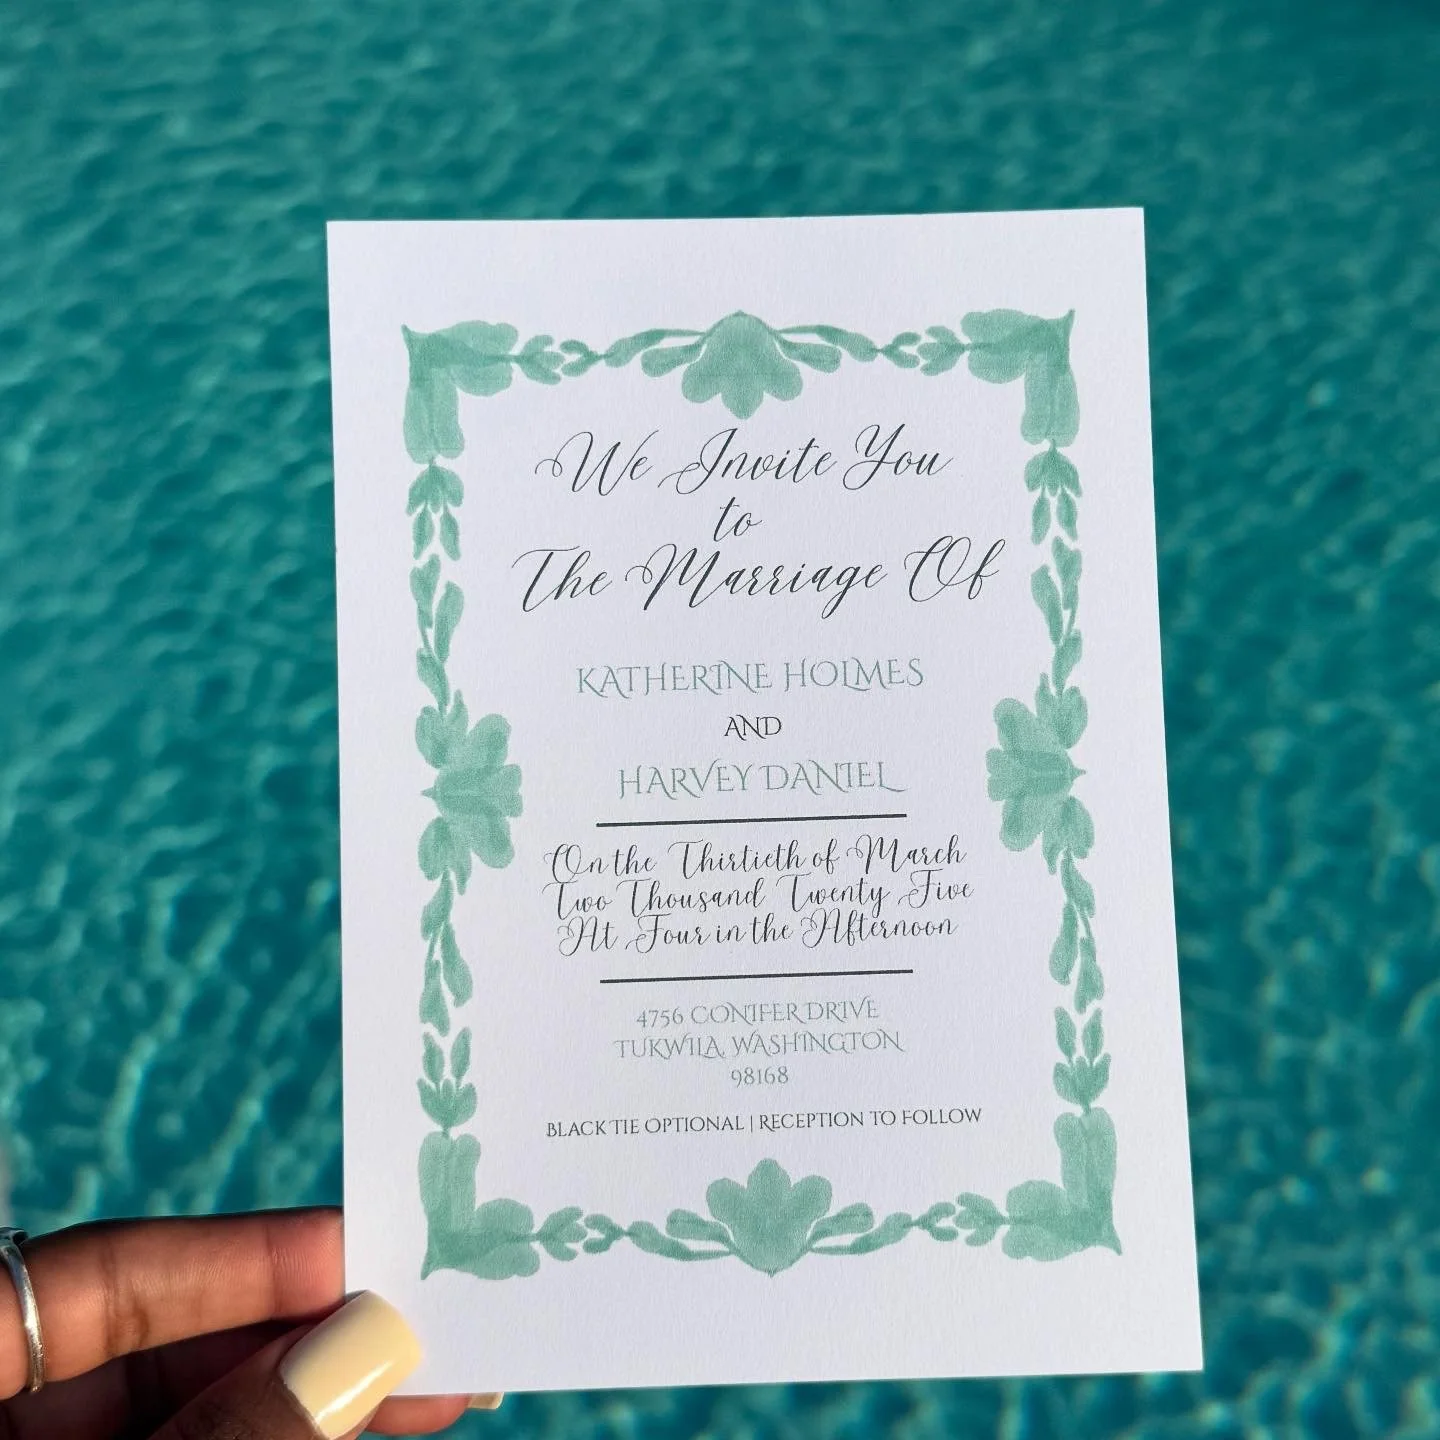 We Invite You
to
The Marriage Of
KATHERINE HOLMES
AND
HARVEY DANIEL
On the Thirtieth of March
Two Thousand Twenty Five
At Four in the Afternoon
4756 CONIFER DRIVE
TUKWILA, WASHINGTON
98168
BLACK TIE OPTIONAL | RECEPTION TO FOLLOW